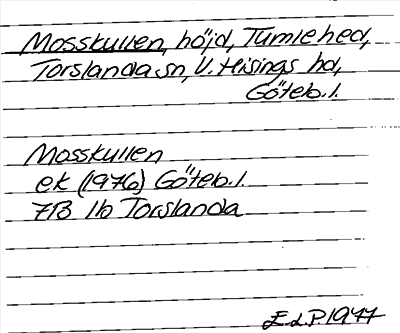 Mosskullen, höjd, Tumlehed,
Torslanda sn, V. Hisings hd,
Göteb. l.
Mosskullen
ek (1976) Göteb. l.
7B 1b Torslanda
E L P 1977